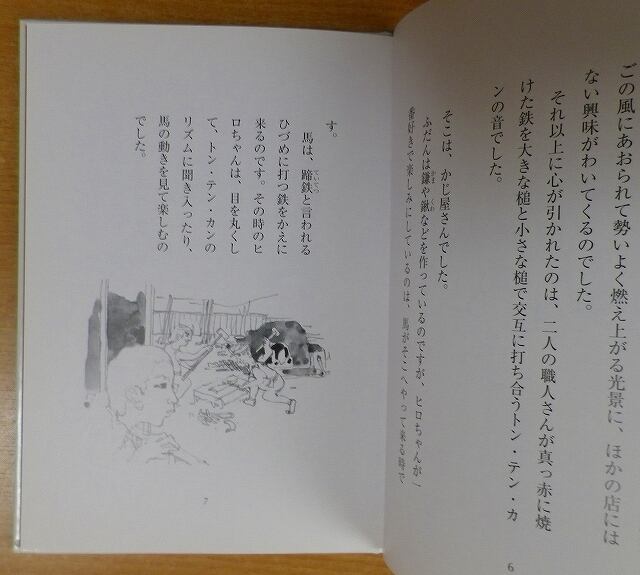 ごの風にあおられて勢いよく燃え上がる光景に、ほかの店には
ない興味がわいてくるのでした。
それ以上に心が引かれたのは、二人の職人さんが真っ赤に焼
けた鉄を大きな槌と小さな槌で交互に打ち合うトン・テン・カ
ンの音でした。
そこは、かじ屋さんでした。
ふだんは鎌や鍬などを作っているのですが、ヒロちゃんが一
番好きで楽しみにしているのは、馬がそこへやって来る時で
6
す。
馬は、蹄鉄と言われる
ひづめに打つ鉄をかえに
来るのです。その時のヒ
ロちゃんは、目を丸くし
て、トン・テン・カンの
リズムに聞き入ったり、
馬の動きを見て楽しむの
でした。
7